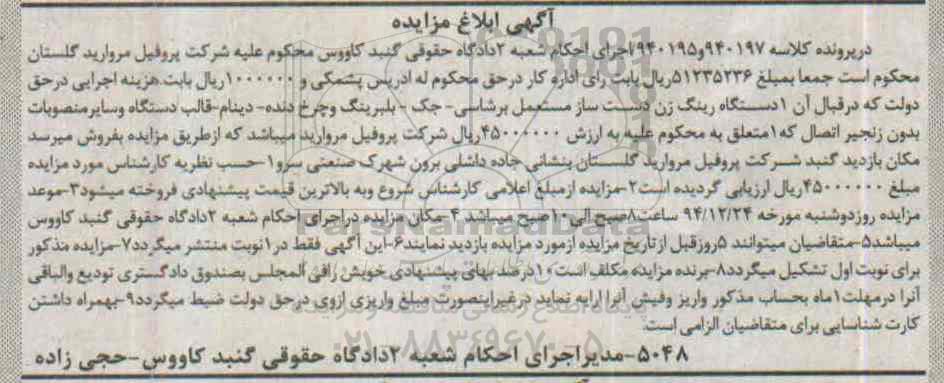 آگهی ابلاغ مزایده
درپرونده کلاسه ۹۴۰۱۹۷و۹۴۰۱۹۵اجرای احکام شعبه ۲دادگاه حقوقی گنبد کاووس محکوم علیه شرکت پروفیل مروارید گلستان
محکوم است جمعا بمبلغ ۵۱۲۳۵۲۳۶ریال بابت رای اداره کار درحق محکوم له ادریس پشمکی و ۱۰۰۰۰۰۰ریال بابت هزینه اجرایی درحق
دولت که درقبال آن ۱دستگاه رینگ زن دست ساز مستعمل برشاسی- جک - بلبرینگ وچرخ دنده- دینام-قالب دستگاه وسایرمنصوبات
بدون زنجیر اتصال که ۱متعلق به محکوم علیه به ارزش ۴۵۰۰۰۰۰۰ریال شرکت پروفیل مروارید میباشد که ازطریق مزایده بفروش میرسد
مکان بازدید گنبد شرکت پروفیل مروارید گلستان بنشانی جاده داشلی برون شهرک صنعتی سرو۱-حسب نظریه کارشناس مورد مزایده
مبلغ ۴۵۰۰۰۰۰۰ریال ارزیابی گردیده است۲-مزایده ازمبلغ اعلامی کارشناس شروع وبه بالاترین قیمت پیشنهادی فروخته میشود۳-موعد
مزایده روزدوشنبه مورخه ۹۴/۱۲/۲۴ ساعت۸صبح الی۱۰صبح میباشد ۴-مکان مزایده دراجرای احکام شعبه ۲دادگاه حقوقی گنبد کاووس
میباشد۵-متقاضیان میتوانند ۵روزقبل ازتاریخ مزایده ازمورد مزایده بازدید نمایند۶-این آگهی فقط در۱نوبت منتشر میگردد۷-مزایده مذکور
برای نوبت اول تشکیل میگردد۸-برنده مزایده مکلف است۱۰درصد بهای پیشنهادی خویش رافی المجلس بصندوق دادگستری تودیع والباقی
آنرا درمهلت۱ماه بحساب مذکور واریز وفیش آنرا ارایه نماید درغیراینصورت مبلغ واریزی ازوی درحق دولت ضبط میگردد۹-بهمراه داشتن
کارت شناسایی برای متقاضیان الزامی است.
۵۰۴۸-مدیراجرای احکام شعبه ۲دادگاه حقوقی گنبد کاووس-حجی زاده
ParsNamadData
۰۲۱-۸۸۳۴۹۶۷۰-۵